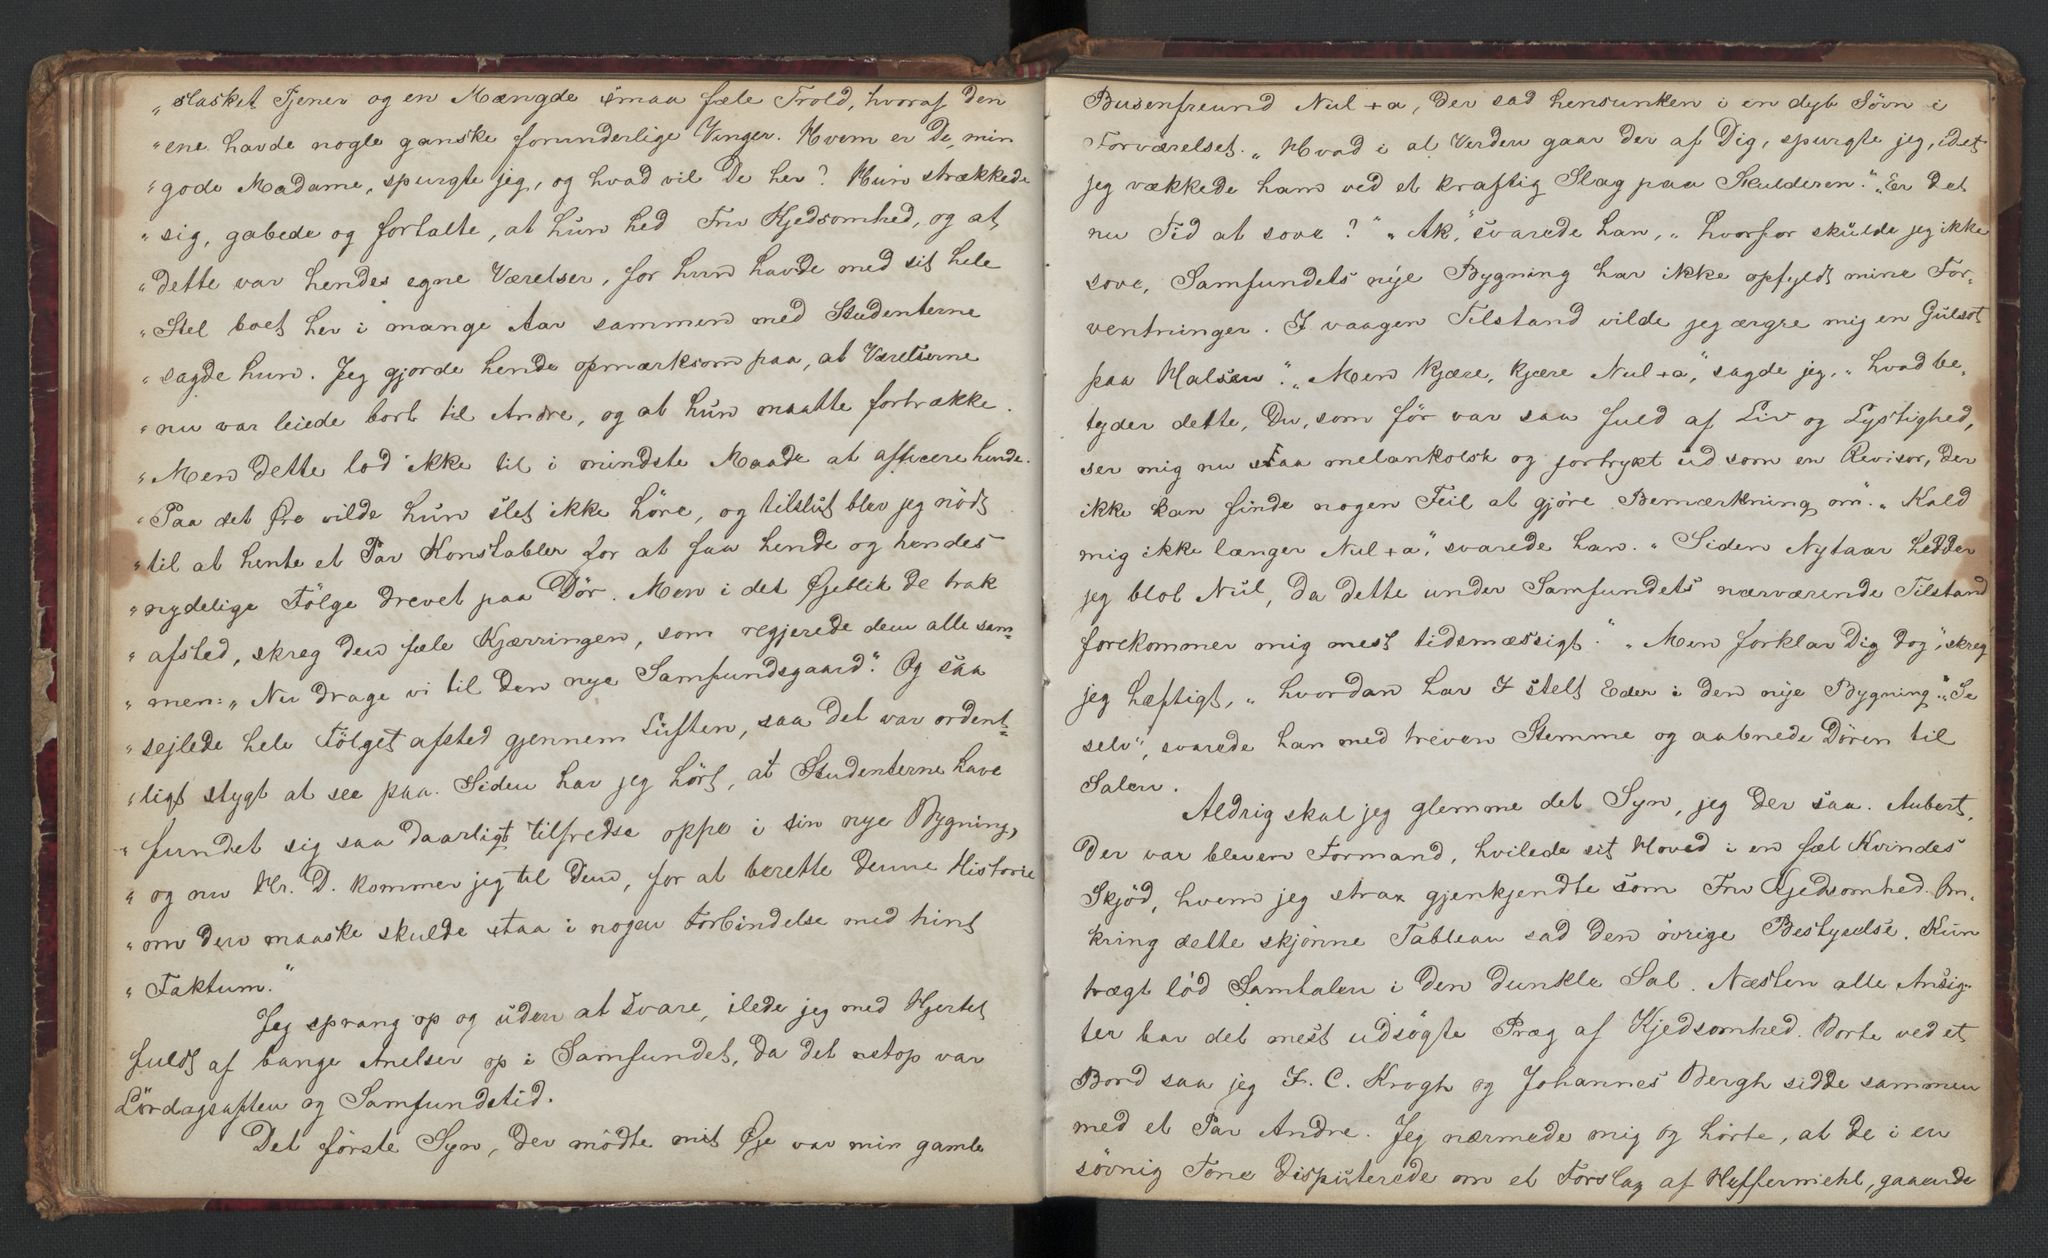 „slasket Tjener og en Mængde smaa fæle Trold, hvoraf den
„ene havde nogle ganske forunderlige Vinger. Hvem er De, min
„gode Madame, spurgte jeg, og hvad vil De her? Hun strækkede
„sig, gabede og fortalte, at hun hed Fru Kjedsomhed, og at
„dette var hendes egne Værelser, for hun havde med sit hele
„Stel boet her i mange Aar sammen med Studenterne
„sagde hun. Jeg gjorde hende opmærksom paa, at Værelserne
„nu var leiede bort til Andre, og at hun maatte fortrække.
„Men dette lod ikke til i mindste Maade at afficere hende.
„Paa det Øre vilde hun slet ikke høre, og tilslut blev jeg nödt
„til at hente et Par Konstabler for at faa hende og hendes
„nydelige Fölge drevet paa Dör. Men i det Øjeblik de trak
„afsted, skreg den fæle Kjærringen, som regjerede dem alle sam-
„men: „Nu drage vi til den nye Samfundsgaard". Og saa
„sejlede hele Fölget afsted gjennem Luften, saa det var ordent-
„ligt stygt at see paa. Siden har jeg hört, at Studenterne have
„fundet sig saa daarligt tilfredse oppe i sin nye Bygning,
„og nu Hr. D. kommer jeg til Dem, for at berette denne Historie
„om den maaske skulde staa i nogen Forbindelse med hint
„Faktum."
Jeg sprang op og uden at svare, ilede jeg med Hjertet
fuldt af bange Anelser op i Samfundet, da det netop var
Lördagsaften og Samfundstid.
Det förste Syn, der mödte mit Øje var min gamle
Busenfreund Nul+a, der sad hensunken i en dyb Sövn i
Forværelset. „Hvad i al Verden gaar der af Dig, spurgte jeg, idet
jeg vækkede ham ved et kraftig Slag paa Skulderen." „Er det
nu Tid at sove?" „Ak," svarede han, „hvorfor skulde jeg ikke
sove, Samfundets nye Bygning har ikke opfyldt mine For-
ventninger. I vaagen Tilstand vilde jeg ærgre mig en Gulsot
paa Halsen". „Men kjære, kjære Nul+a", sagde jeg, „hvad be-
tyder dette, Du, som för var saa fuld af Liv og Lystighed,
ser mig nu saa melankolsk og fortrykt ud som en Revisor, der
ikke kan finde nogen Feil at gjöre Bemærkning om". „Kald
mig ikke længer Nul+a", svarede han. „Siden Nytaar hedder
jeg blot Nul, da dette under Samfundets nærværende Tilstand
forekommer mig mest tidsmæssigt." „Men forklar Dig dog", skreg
jeg hæftigt, „hvordan har I stelt Eder i den nye Bygning". „Se
selv", svarede han med treven Stemme og aabnede Dören til
Salen.
Aldrig skal jeg glemme det Syn, jeg der saa. Aubert,
der var bleven Formand, hvilede sit Hoved i en fæl Kvindes
Skjöd, hvem jeg strax gjenkjendte som Fru Kjedsomhed. Om-
kring dette skjönne Tableau sad den övrige Bestyrelse. Kun
trægt löd Samtalen i den dunkle Sal. Næsten alle Ansig-
ter bar det mest udsögte Præg af Kjedsomhed. Borte ved et
Bord saa jeg F. C. Krogh og Johannes Bergh sidde sammen
med et Par Andre. Jeg nærmede mig og hörte, at de i en
sövnig Tone disputerede om et Forslag af Heffermehl, gaaende